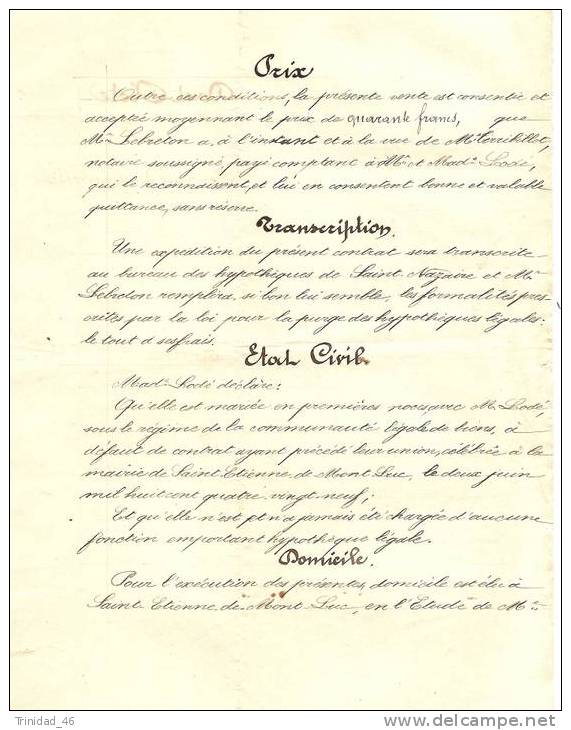 Prix
Outre ces conditions, la présente vente est consentie et
acceptée moyennant le prix de quarante francs, que
Mr Lebreton a, à l'instant et à la vue de Me
notaire soussigné, payé comptant à Mr et Made Lodé,
qui le reconnaissent, et lui en consentent bonne et valable
quittance, sans réserve.
Transcription.
Une expédition du présent contrat sera transcrite
au bureau des hypothèques de Saint Nazaire et Mr
Lebreton remplira, si bon lui semble, les formalités pres-
crites par la loi pour la purge des hypothèques légales:
le tout à ses frais.
Etat Civil.
Made Lodé déclare:
Qu'elle est mariée en premières noces avec Mr Lodé,
sous le régime de la communauté légale de biens, à
défaut de contrat ayant précédé leur union, célébrée à la
mairie de Saint Etienne de Mont Luc, le deux juin
mil huit cent quatre vingt neuf;
Et qu'elle n'est et n'a jamais été chargée d'aucune
fonction emportant hypothèque légale.
Domicile.
Pour l'exécution des présentes, domicile est élu à
Saint Etienne de Mont Luc, en l'Etude de Me
Trinidad_46
delcampe.net